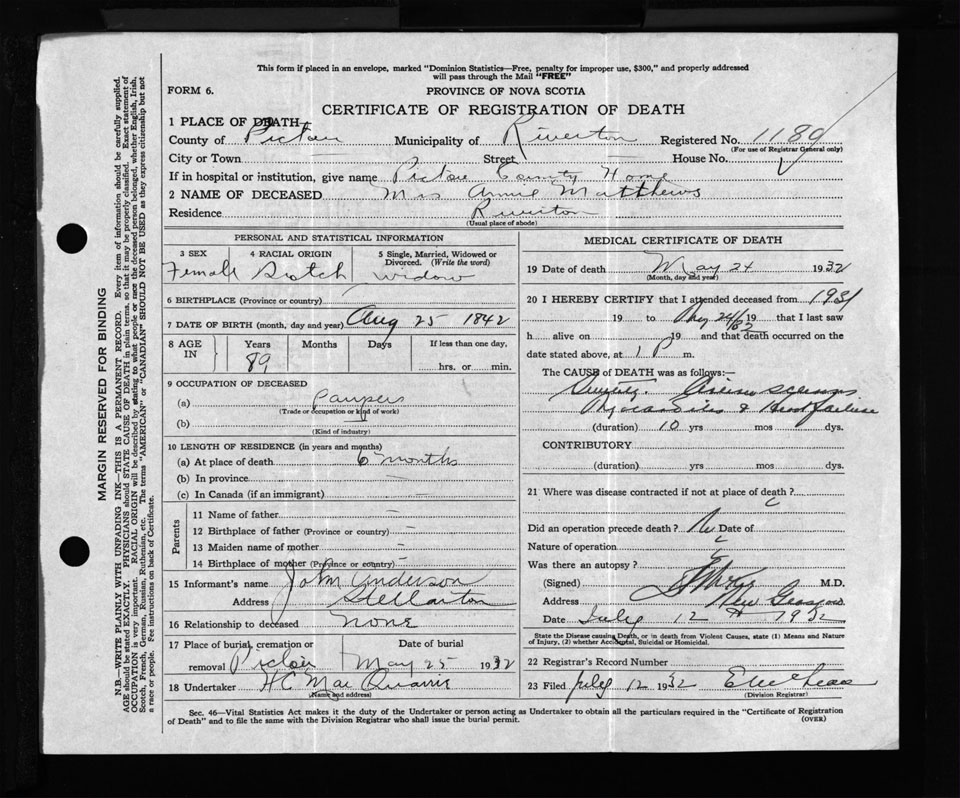 This form if placed in an envelope, marked "Dominion Statistics—Free, penalty for improper use, $300," and properly addressed
will pass through the Mail "FREE"
FORM 6.
PROVINCE OF NOVA SCOTIA
CERTIFICATE OF REGISTRATION OF DEATH
1 PLACE OF DEATH
County of Pictou Municipality of Riverton Registered No. 1189
(For use of Registrar General only)
City or Town — Street — House No.
If in hospital or institution, give name Pictou County Home
2 NAME OF DECEASED Mrs Annie Matthews
Residence Riverton
(Usual place of abode)
PERSONAL AND STATISTICAL INFORMATION
3 SEX 4 RACIAL ORIGIN 5 Single, Married, Widowed or
Divorced. (Write the word)
Female Scotch Widow
6 BIRTHPLACE (Province or country)
7 DATE OF BIRTH (month, day and year) Aug 25 1842
8 AGE IN Years Months Days If less than one day,
89
hrs. or min.
9 OCCUPATION OF DECEASED
(a) Paupers
(Trade or occupation or kind of work)
(b)
(Kind of industry)
10 LENGTH OF RESIDENCE (in years and months)
(a) At place of death 6 months
(b) In province —
(c) In Canada (if an immigrant) —
Parents
11 Name of father —
12 Birthplace of father (Province or country) —
13 Maiden name of mother —
14 Birthplace of mother (Province or country) —
15 Informant's name John Anderson
Address Stellarton
16 Relationship to deceased none
17 Place of burial, cremation or Date of burial
removal Pictou May 25 1932
18 Undertaker H C Mac Quarrie
(Name and address)
MEDICAL CERTIFICATE OF DEATH
19 Date of death May 24 1932
(Month, day and year)
20 I HEREBY CERTIFY that I attended deceased from 1931
19 to May 24/32 19 that I last saw
h alive on 19 and that death occurred on the
date stated above, at 1 P m.
The CAUSE OF DEATH was as follows:—
Myocarditis & Heart failure
(duration) 10 yrs mos dys.
CONTRIBUTORY
(duration) yrs mos dys.
21 Where was disease contracted if not at place of death ?
Did an operation precede death ? No Date of
Nature of operation
Was there an autopsy ?
(Signed) M.D.
Address New Glasgow
Date July 12 1932
State the Disease causing Death, or in death from Violent Causes, state (1) Means and Nature
of Injury, (2) whether Accidental, Suicidal or Homicidal.
22 Registrar's Record Number
23 Filed July 12 1932
(Division Registrar)
Sec. 46—Vital Statistics Act makes it the duty of the Undertaker or person acting as Undertaker to obtain all the particulars required in the "Certificate of Registration
of Death" and to file the same with the Division Registrar who shall issue the burial permit.
(OVER)
MARGIN RESERVED FOR BINDING
N.B.—WRITE PLAINLY WITH UNFADING INK—THIS IS A PERMANENT RECORD. Every item of information should be carefully supplied.
AGE should be stated EXACTLY. PHYSICIANS should STATE CAUSE OF DEATH in plain terms, so that it may be properly classified. Exact statement of
OCCUPATION is very important. RACIAL ORIGIN will be described by stating to what people or race the deceased person belonged, whether English, Irish,
Scotch, French, German, Russian, Ruthenian, etc. The terms "AMERICAN" or "CANADIAN" SHOULD NOT BE USED as they express citizenship but not
a race or people. Fee instructions on back of Certificate.